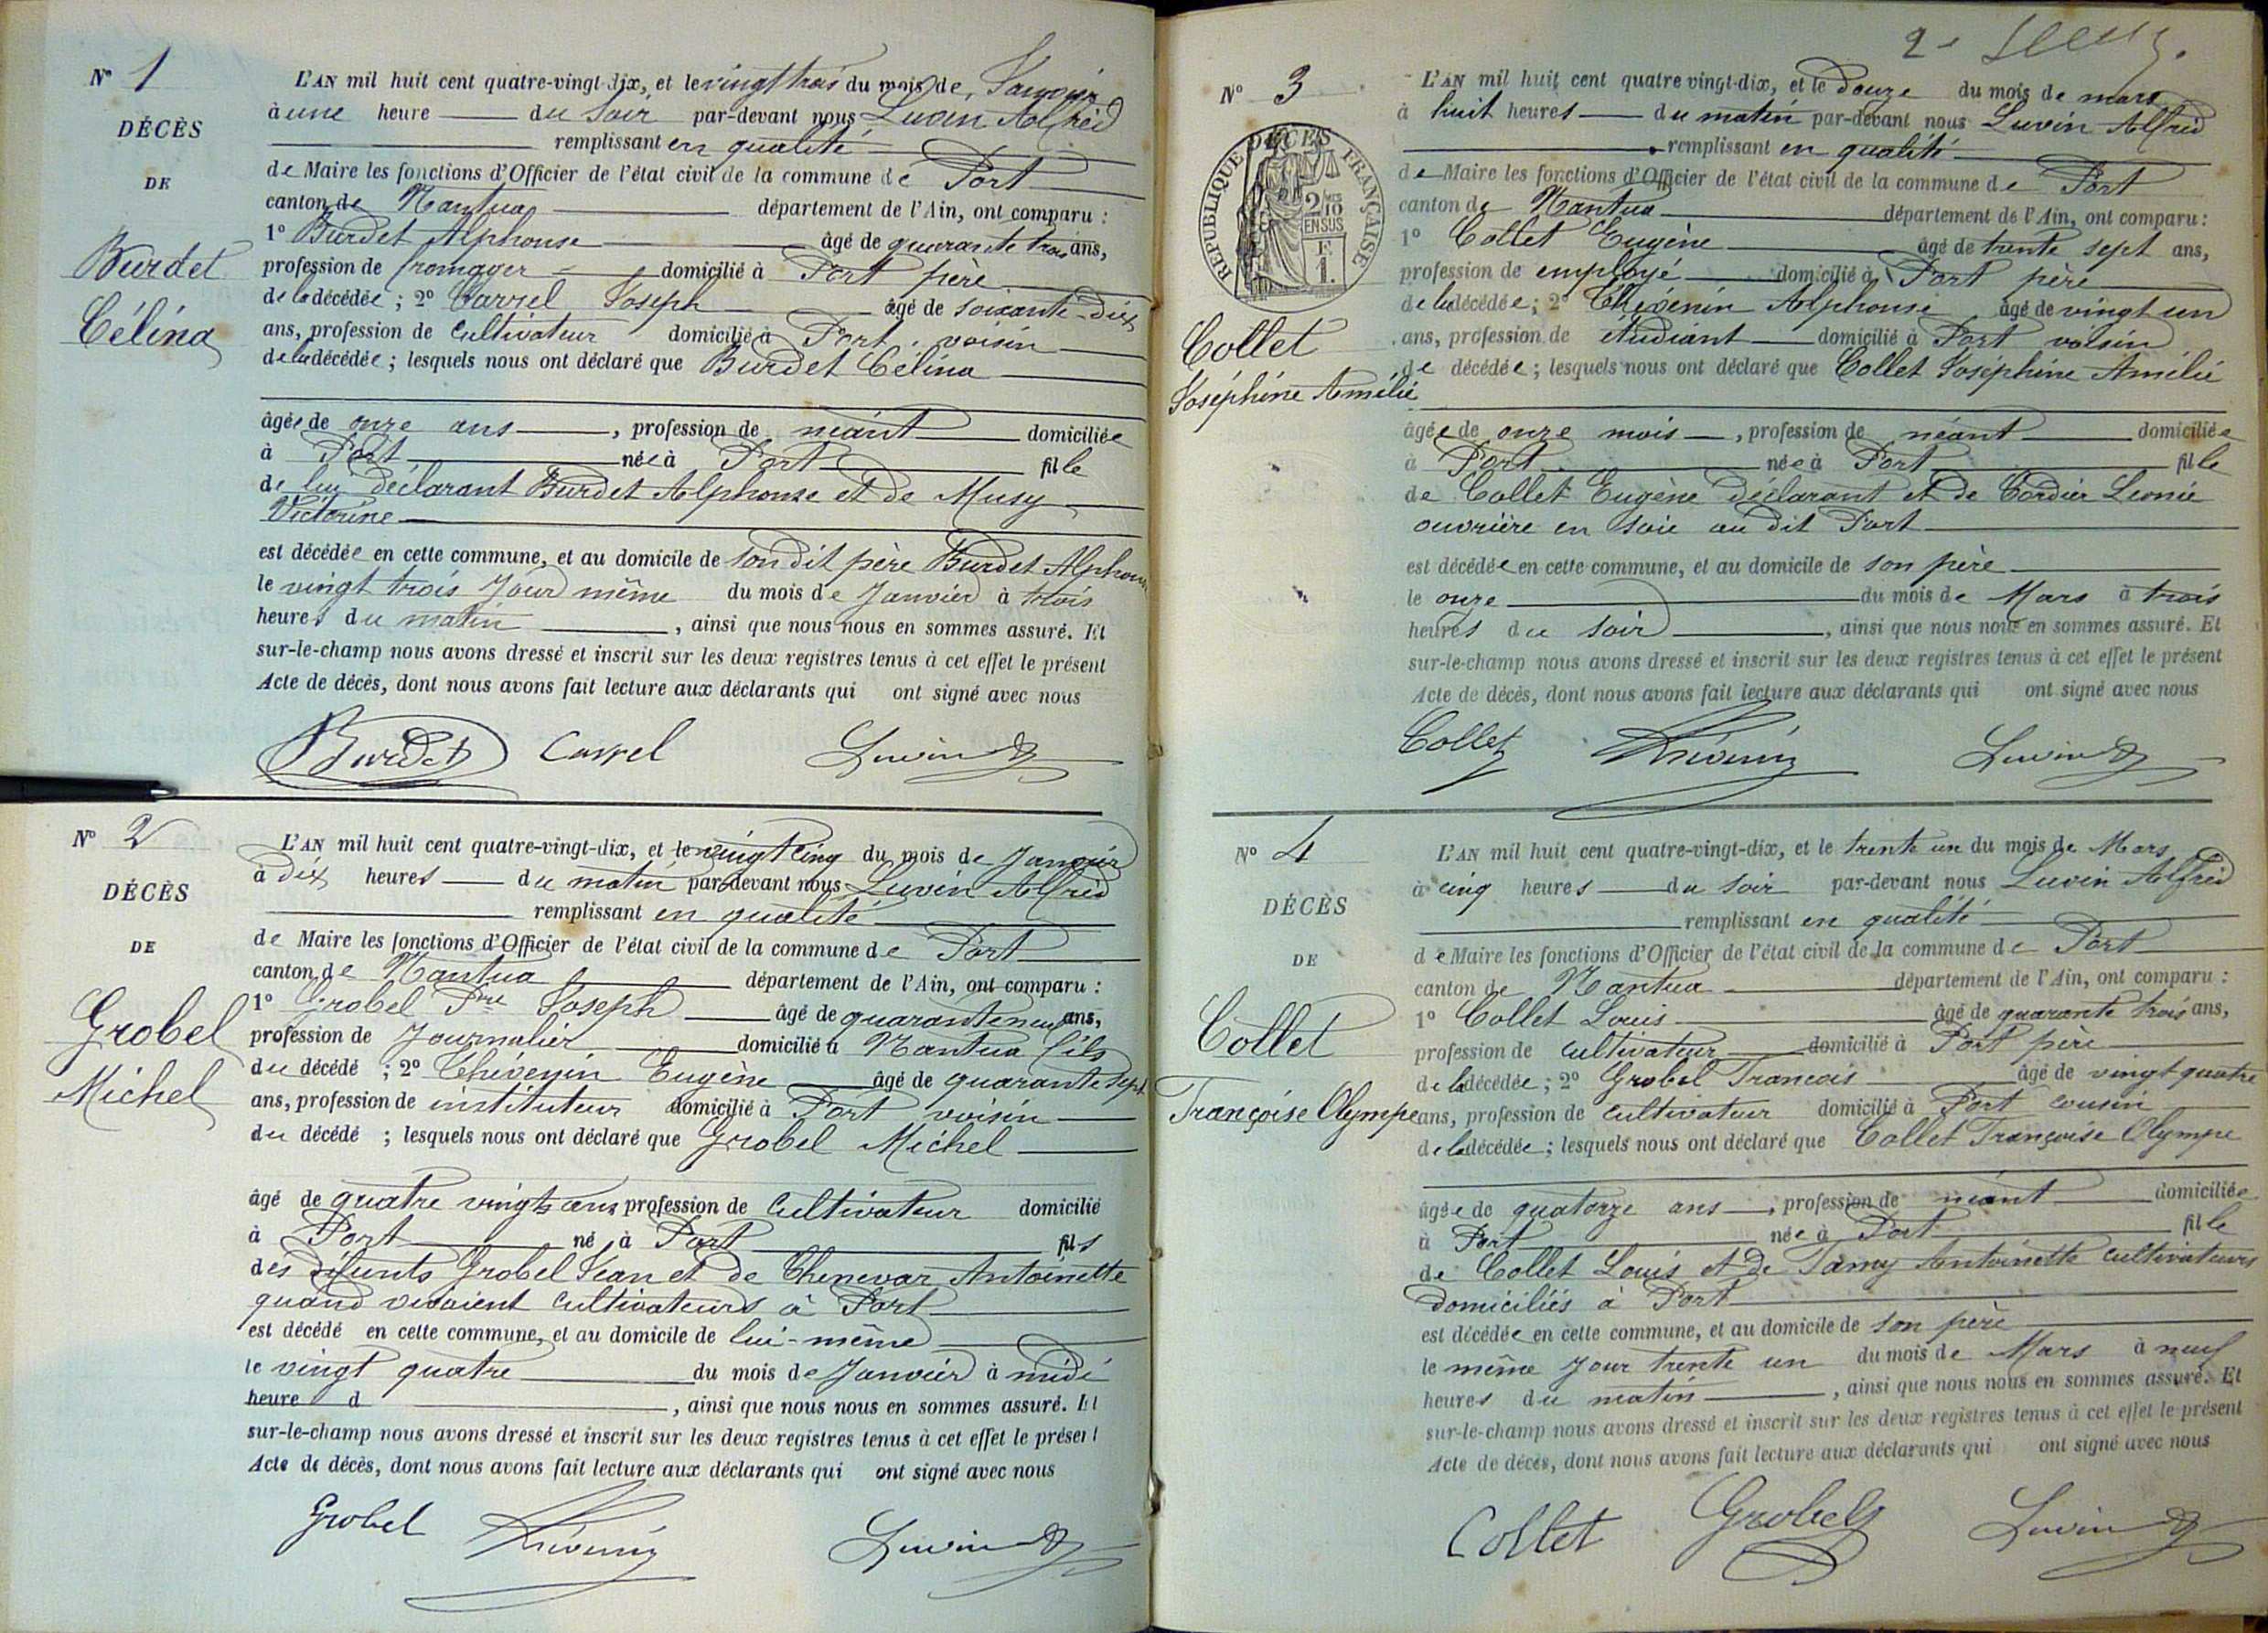 N° 1
DÉCÈS
DE
Burdet
Célina
L'AN mil huit cent quatre-vingt-dix, et le vingt trois du mois de Janvier
à une heure du soir par-devant nous Luvin Alfred
remplissant en qualité
de Maire les fonctions d'Officier de l'état civil de la commune de Port
canton de Nantua département de l'Ain, ont comparu :
1° Burdet Alphonse âgé de quarante trois ans,
profession de fromager domicilié à Port père
de la décédée ; 2° Carrel Joseph âgé de soixante-dix
ans, profession de cultivateur domicilié à Port, voisin
de la décédée ; lesquels nous ont déclaré que Burdet Célina
âgée de onze ans, profession de néant domiciliée
à Port née à Port fille
de lui déclarant Burdet Alphonse et de Musy
Victorine
est décédée en cette commune, et au domicile de son dit père Burdet Alphonse
le vingt trois Jour même du mois de Janvier à trois
heures du matin, ainsi que nous nous en sommes assuré. Et
sur-le-champ nous avons dressé et inscrit sur les deux registres tenus à cet effet le présent
Acte de décès, dont nous avons fait lecture aux déclarants qui ont signé avec nous
Burdet Carrel Luvin
N° 2
DÉCÈS
DE
Grobel
Michel
L'AN mil huit cent quatre-vingt-dix, et le vingt cinq du mois de Janvier
à dix heures du matin par-devant nous Luvin Alfred
remplissant en qualité
de Maire les fonctions d'Officier de l'état civil de la commune de Port
canton de Nantua département de l'Ain, ont comparu :
1° Grobel Pre Joseph âgé de quarante neuf ans,
profession de Journalier domicilié à Nantua fils
du décédé ; 2° Thévenin Eugène âgé de quarante sept
ans, profession de instituteur domicilié à Port voisin
du décédé ; lesquels nous ont déclaré que Grobel Michel
âgé de quatre vingts ans profession de cultivateur domicilié
à Port né à Port fils
des défunts Grobel Jean et de Chenevar Antoinette
quand vivaient cultivateurs à Port
est décédé en cette commune, et au domicile de lui-même
le vingt quatre du mois de Janvier à midi
heure d , ainsi que nous nous en sommes assuré. Et
sur-le-champ nous avons dressé et inscrit sur les deux registres tenus à cet effet le présent
Acte de décès, dont nous avons fait lecture aux déclarants qui ont signé avec nous
Grobel Thévenin Luvin
2e
N° 3
RÉPUBLIQUE FRANÇAISE
DÉCÈS
2/10 EN SUS
F.
1.
Collet
Joséphine Amélie
L'AN mil huit cent quatre vingt-dix, et le douze du mois de mars
à huit heures du matin par-devant nous Luvin Alfred
remplissant en qualité
de Maire les fonctions d'Officier de l'état civil de la commune de Port
canton de Nantua département de l'Ain, ont comparu :
1° Collet Eugène âgé de trente sept ans,
profession de employé domicilié à Port père
de la décédée ; 2° Thévenin Alphonse âgé de vingt un
ans, profession de étudiant domicilié à Port voisin
de décédée ; lesquels nous ont déclaré que Collet Joséphine Amélie
âgée de onze mois, profession de néant domiciliée
à Port née à Port fille
de Collet Eugène déclarant et de Cordier Léonie
ouvrière en soie au dit Port
est décédée en cette commune, et au domicile de son père
le onze du mois de Mars à trois
heures du soir, ainsi que nous nous en sommes assuré. Et
sur-le-champ nous avons dressé et inscrit sur les deux registres tenus à cet effet le présent
Acte de décès, dont nous avons fait lecture aux déclarants qui ont signé avec nous
Collet Thévenin Luvin
N° 4
DÉCÈS
DE
Collet
Françoise Olympe
L'AN mil huit cent quatre-vingt-dix, et le trente un du mois de Mars
à cinq heures du soir par-devant nous Luvin Alfred
remplissant en qualité
de Maire les fonctions d'Officier de l'état civil de la commune de Port
canton de Nantua département de l'Ain, ont comparu :
1° Collet Louis âgé de quarante trois ans,
profession de cultivateur domicilié à Port père
de la décédée ; 2° Grobel François âgé de vingt quatre
ans, profession de cultivateur domicilié à Port cousin
de la décédée ; lesquels nous ont déclaré que Collet Françoise Olympe
âgée de quatorze ans, profession de néant domiciliée
à Port née à Port fille
de Collet Louis et de Antoinette cultivateurs
domiciliés à Port
est décédée en cette commune, et au domicile de son père
le même Jour trente un du mois de Mars à neuf
heures du matin, ainsi que nous nous en sommes assuré. Et
sur-le-champ nous avons dressé et inscrit sur les deux registres tenus à cet effet le présent
Acte de décès, dont nous avons fait lecture aux déclarants qui ont signé avec nous
Collet Grobel Luvin